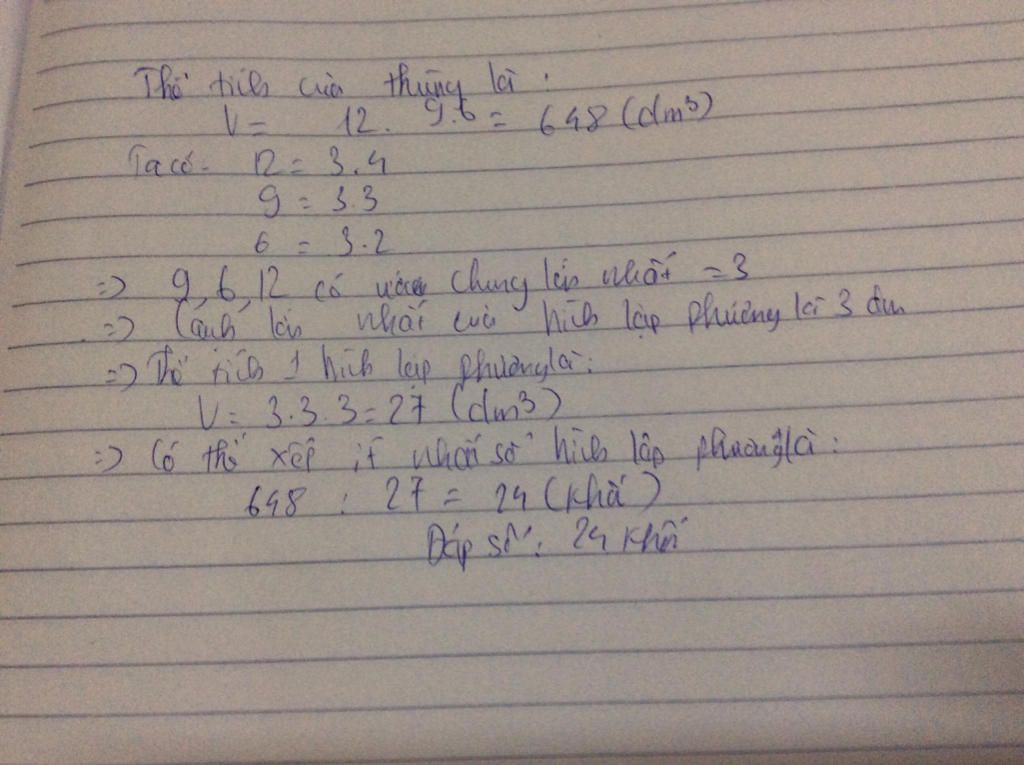 Thể tích của thùng là :
V = 12. 9.6 = 648 (dm³)
Ta có. 12 = 3.4
9 = 3.3
6 = 3.2
=> 9, 6, 12 có ước chung lớn nhất = 3
=> Cạnh lớn nhất của hình lập phương là 3 dm
=> Thể tích 1 hình lập phương là:
V = 3.3.3 = 27 (dm³)
=> Có thể xếp ít nhất số hình lập phương là :
648 : 27 = 24 (khối)
Đáp số : 24 khối